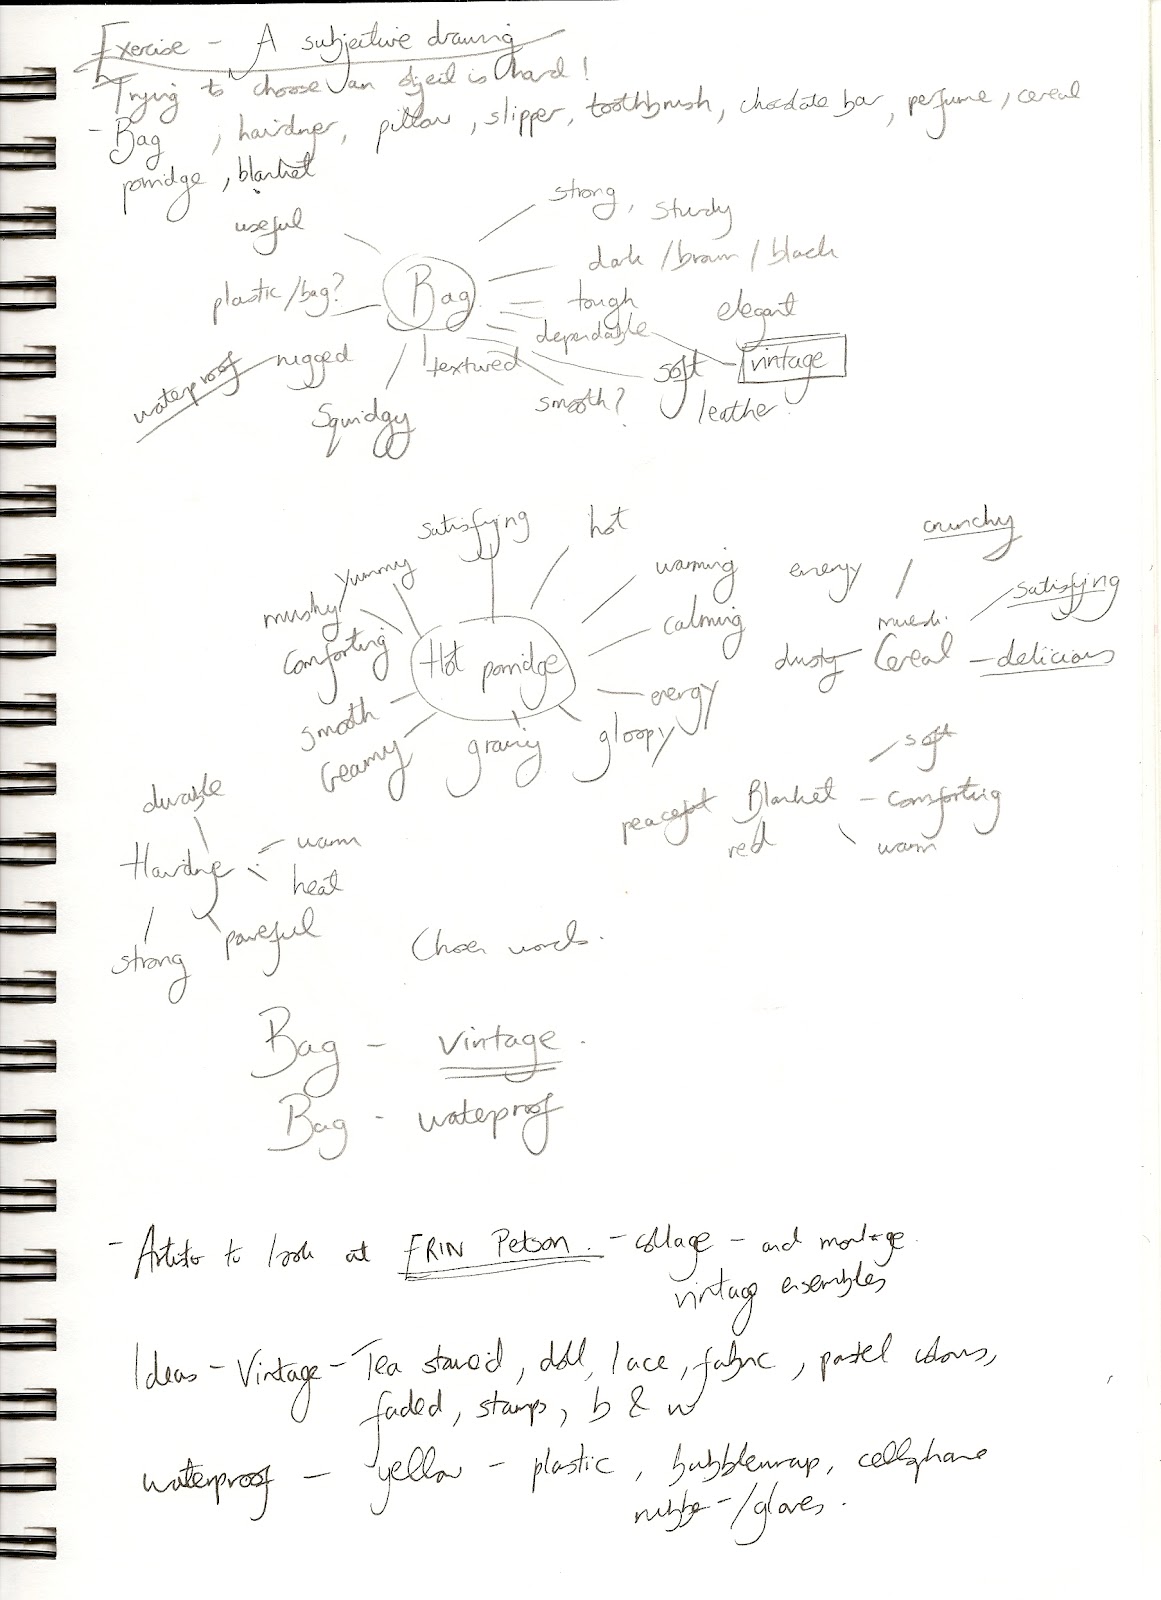 Exercise - A subjective drawing
Trying to choose an object is hard!
- Bag , hairdryer, pillow, slipper, toothbrush, chocolate bar, perfume, cereal
porridge, blanket
useful
strong, sturdy
dark / brown / black
plastic / bag?
Bag
tough
elegant
dependable
vintage
waterproof
rugged
textured
soft
smooth?
leather
Squidgy
satisfying
hot
crunchy
yummy
warming
energy
satisfying
mushy
calming
muesli
comforting
Hot porridge
dusty Cereal - delicious
energy
smooth
grainy
gloopy
creamy
soft
durable
peaceful Blanket - comforting
red
warm
Hairdrye
warm
heat
powerful
strong
Chosen words.
Bag - vintage.
Bag - waterproof
- Artists to look at ERIN Petson. - collage - and montage.
vintage ensembles
Ideas - Vintage - Tea stained, doll, lace, fabric, pastel colours,
faded, stamps, b & w
waterproof - yellow - plastic, bubblewrap, cellophane
rubber - /gloves.